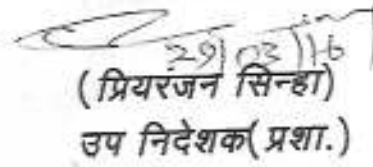 29/03/16
(प्रियरंजन सिन्हा)
उप निदेशक(प्रशा.)